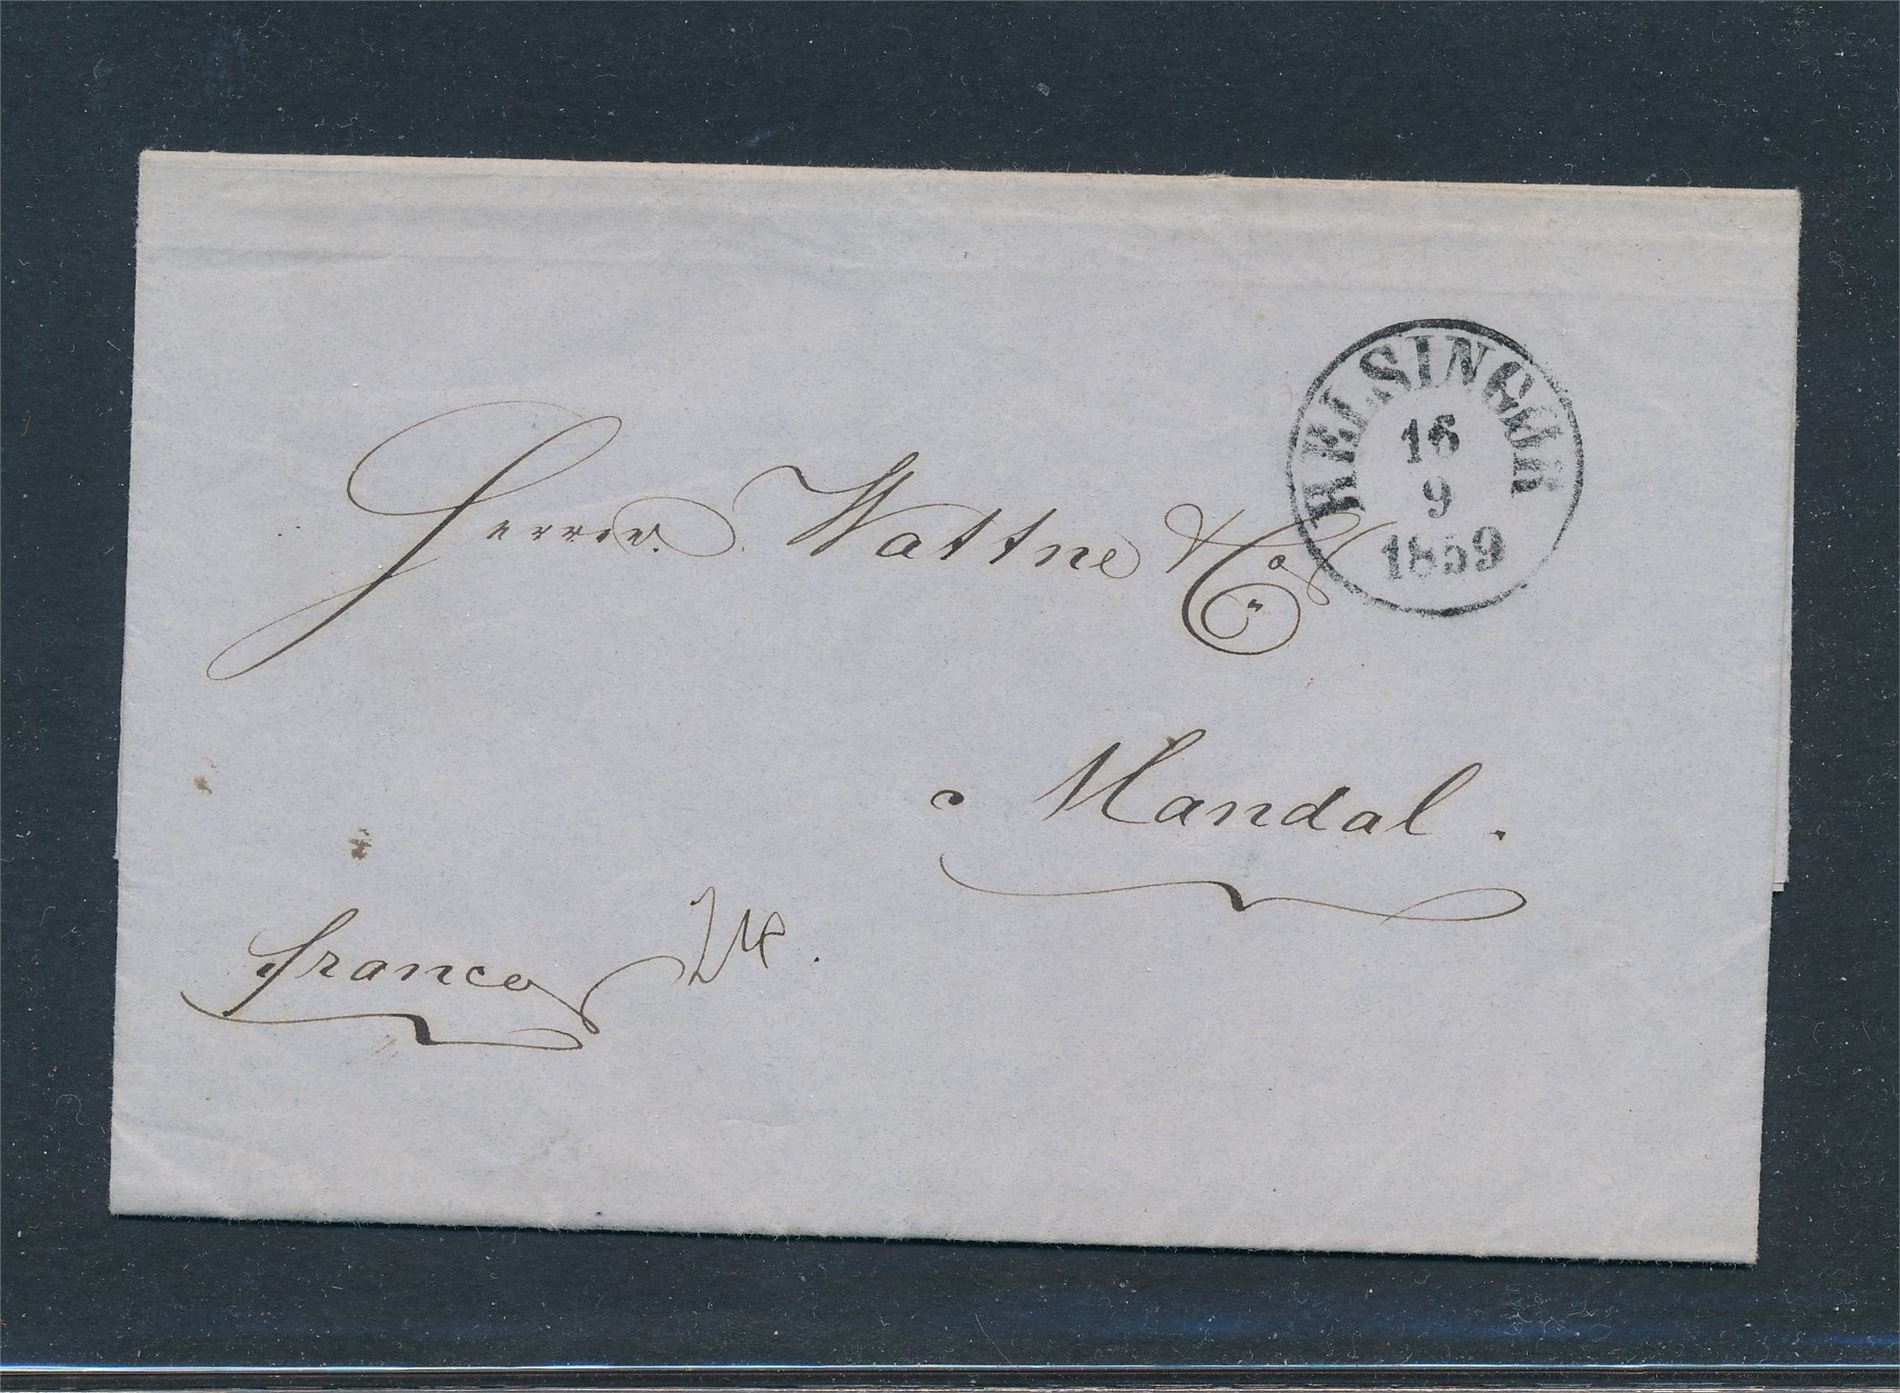 HELSINGÖR
16
9
1859
Herrer Wattne & Co
a Mandal.
franco